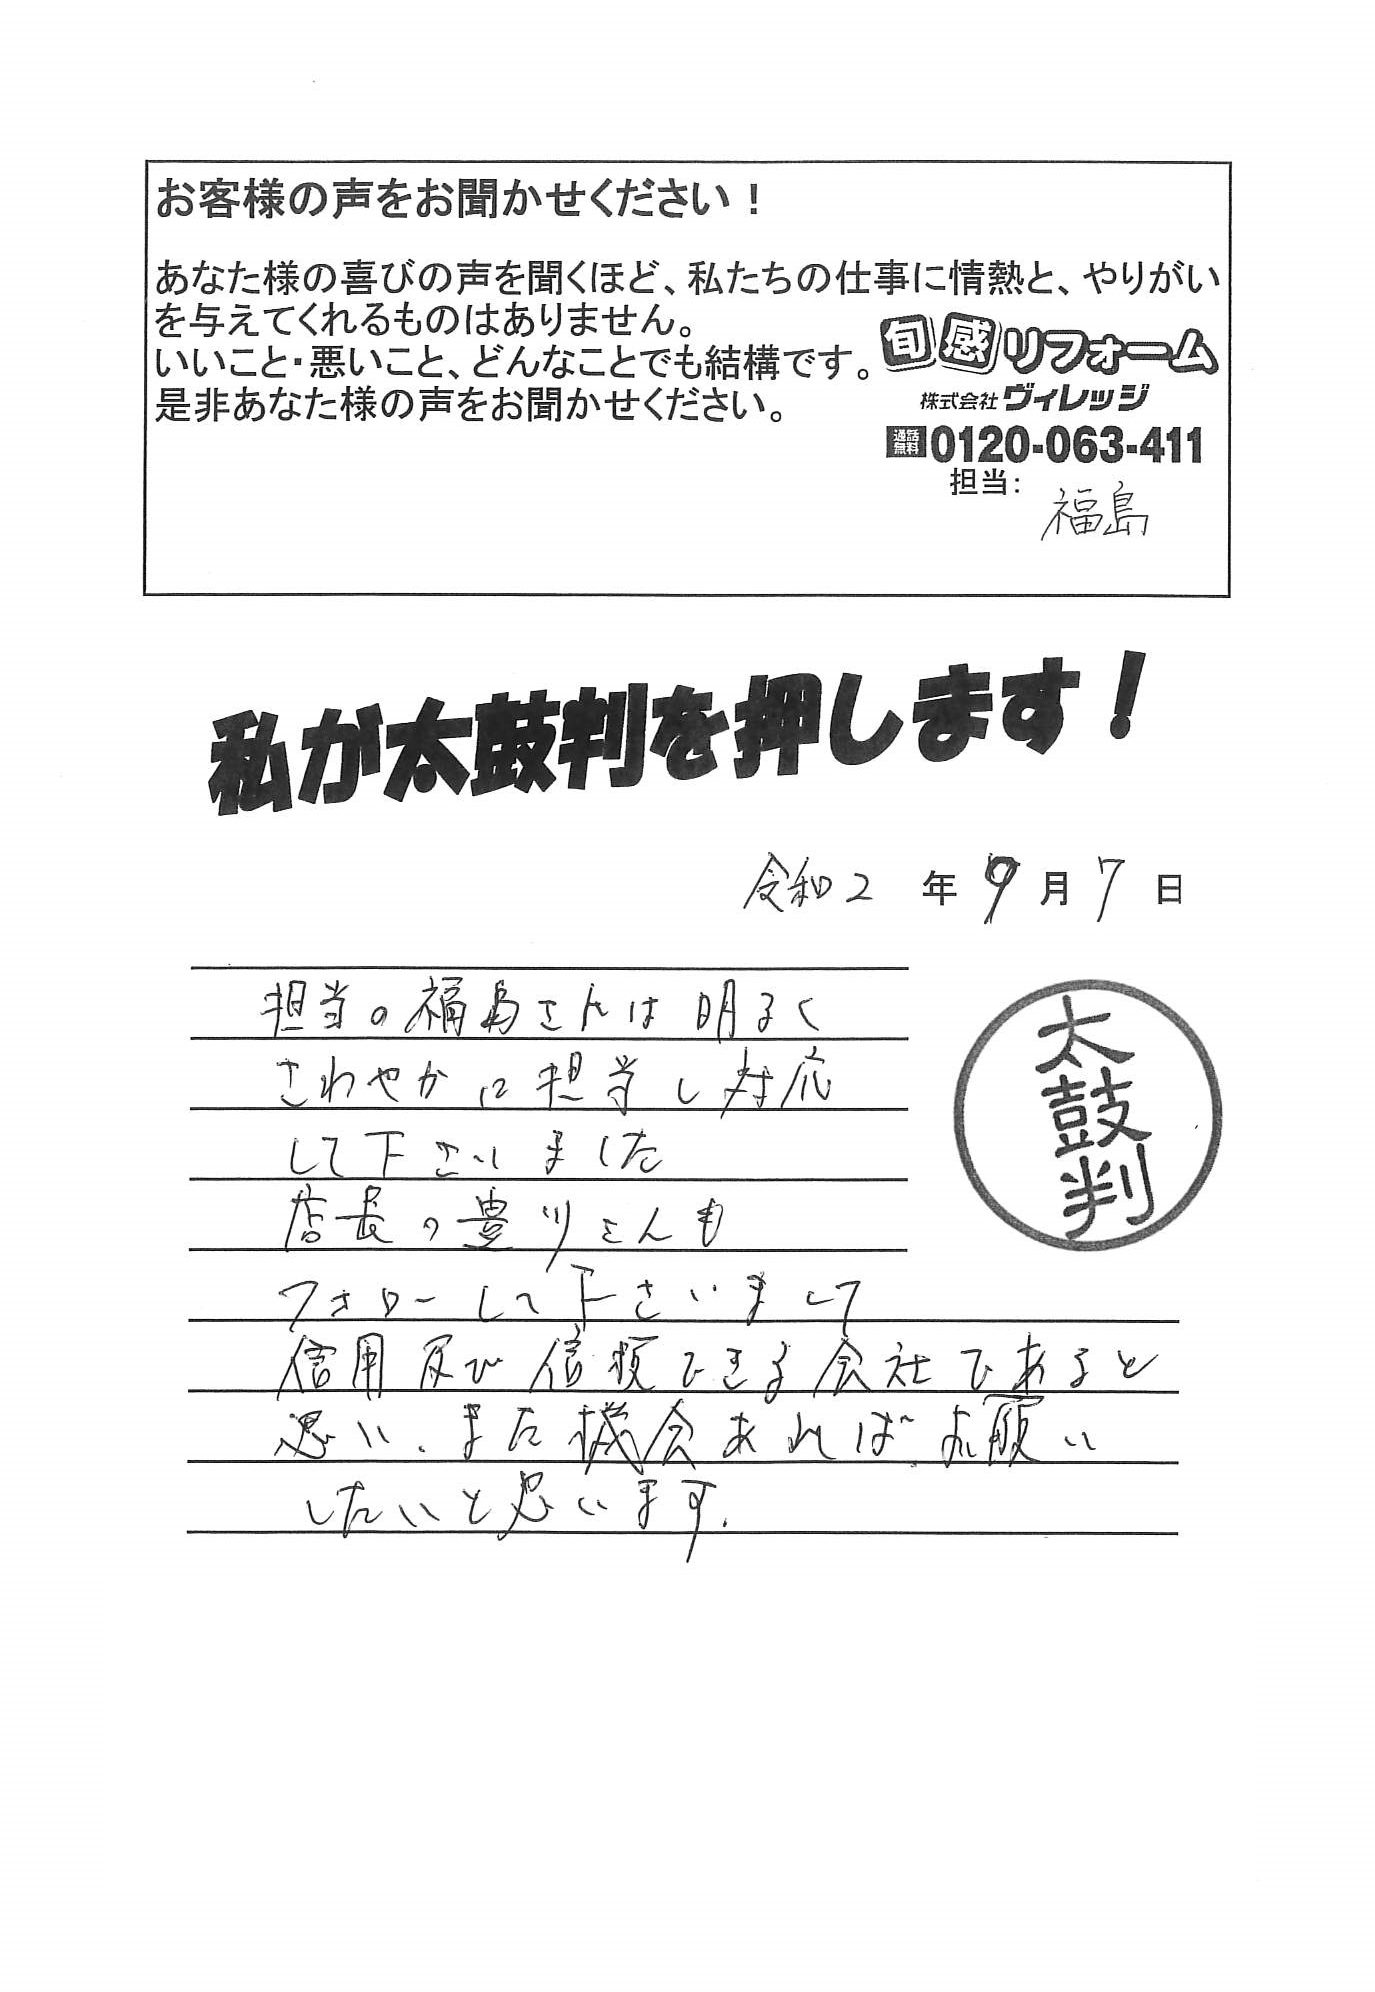 お客様の声をお聞かせください！
あなた様の喜びの声を聞くほど、私たちの仕事に情熱と、やりがい
を与えてくれるものはありません。
いいこと・悪いこと、どんなことでも結構です。
是非あなた様の声をお聞かせください。
旬感リフォーム
株式会社ヴィレッジ
通話無料 0120-063-411
担当：
福島
私が太鼓判を押します！
令和2 年 9 月 7 日
担当の福島さんは明るく
さわやかに担当し対応
して下さいました
店長の豊川さんも
フォローして下さいまして
信用及び信頼できる会社であると
思い、また機会あればお願い
したいと思います.
太鼓判